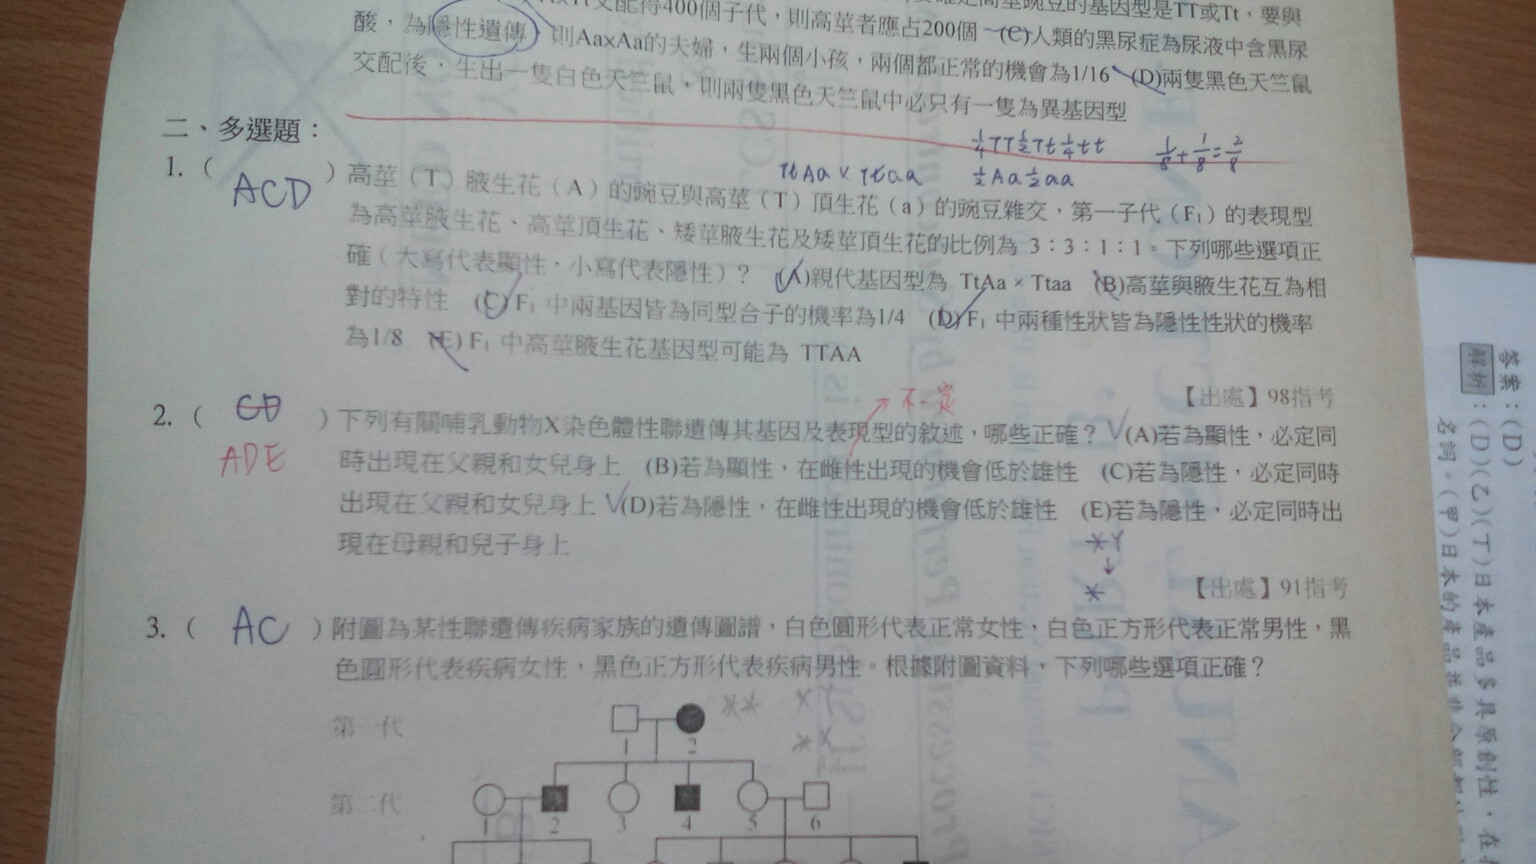 交配得400個子代，則高莖者應占200個 (C)人類的黑尿症為尿液中含黑尿
酸，為隱性遺傳，則AaxAa的夫婦，生兩個小孩，兩個都正常的機會為1/16 (D)兩隻黑色天竺鼠
交配後，生出一隻白色天竺鼠，則兩隻黑色天竺鼠中必只有一隻為異基因型
二、多選題：
1/4TT 1/2Tt 1/4tt 1/8+1/8=2/8
TtAa x Ttaa 1/2Aa 1/2aa
1. ( ACD ) 高莖（T）腋生花（A）的豌豆與高莖（T）頂生花（a）的豌豆雜交，第一子代（F₁）的表現型
為高莖腋生花、高莖頂生花、矮莖腋生花及矮莖頂生花的比例為 3：3：1：1。下列哪些選項正
確（大寫代表顯性，小寫代表隱性）？ (A)親代基因型為 TtAa × Ttaa (B)高莖與腋生花互為相
對的特性 (C) F₁ 中兩基因皆為同型合子的機率為1/4 (D) F₁ 中兩種性狀皆為隱性性狀的機率
為1/8 (E) F₁ 中高莖腋生花基因型可能為 TTAA
【出處】98指考
不一定
2. ( CD ) 下列有關哺乳動物X染色體性聯遺傳其基因及表現型的敘述，哪些正確？ (A)若為顯性，必定同
ADE
時出現在父親和女兒身上 (B)若為顯性，在雌性出現的機會低於雄性 (C)若為隱性，必定同時
出現在父親和女兒身上 (D)若為隱性，在雌性出現的機會低於雄性 (E)若為隱性，必定同時出
現在母親和兒子身上
【出處】91指考
3. ( AC ) 附圖為某性聯遺傳疾病家族的遺傳圖譜，白色圓形代表正常女性，白色正方形代表正常男性，黑
色圓形代表疾病女性，黑色正方形代表疾病男性。根據附圖資料，下列哪些選項正確？
第一代
1 2
第二代
1 2 3 4 5 6
答案：(D)
解析：(D)(乙)(丁)日本產品多具原創性，在
名詞。(甲)日本的產品